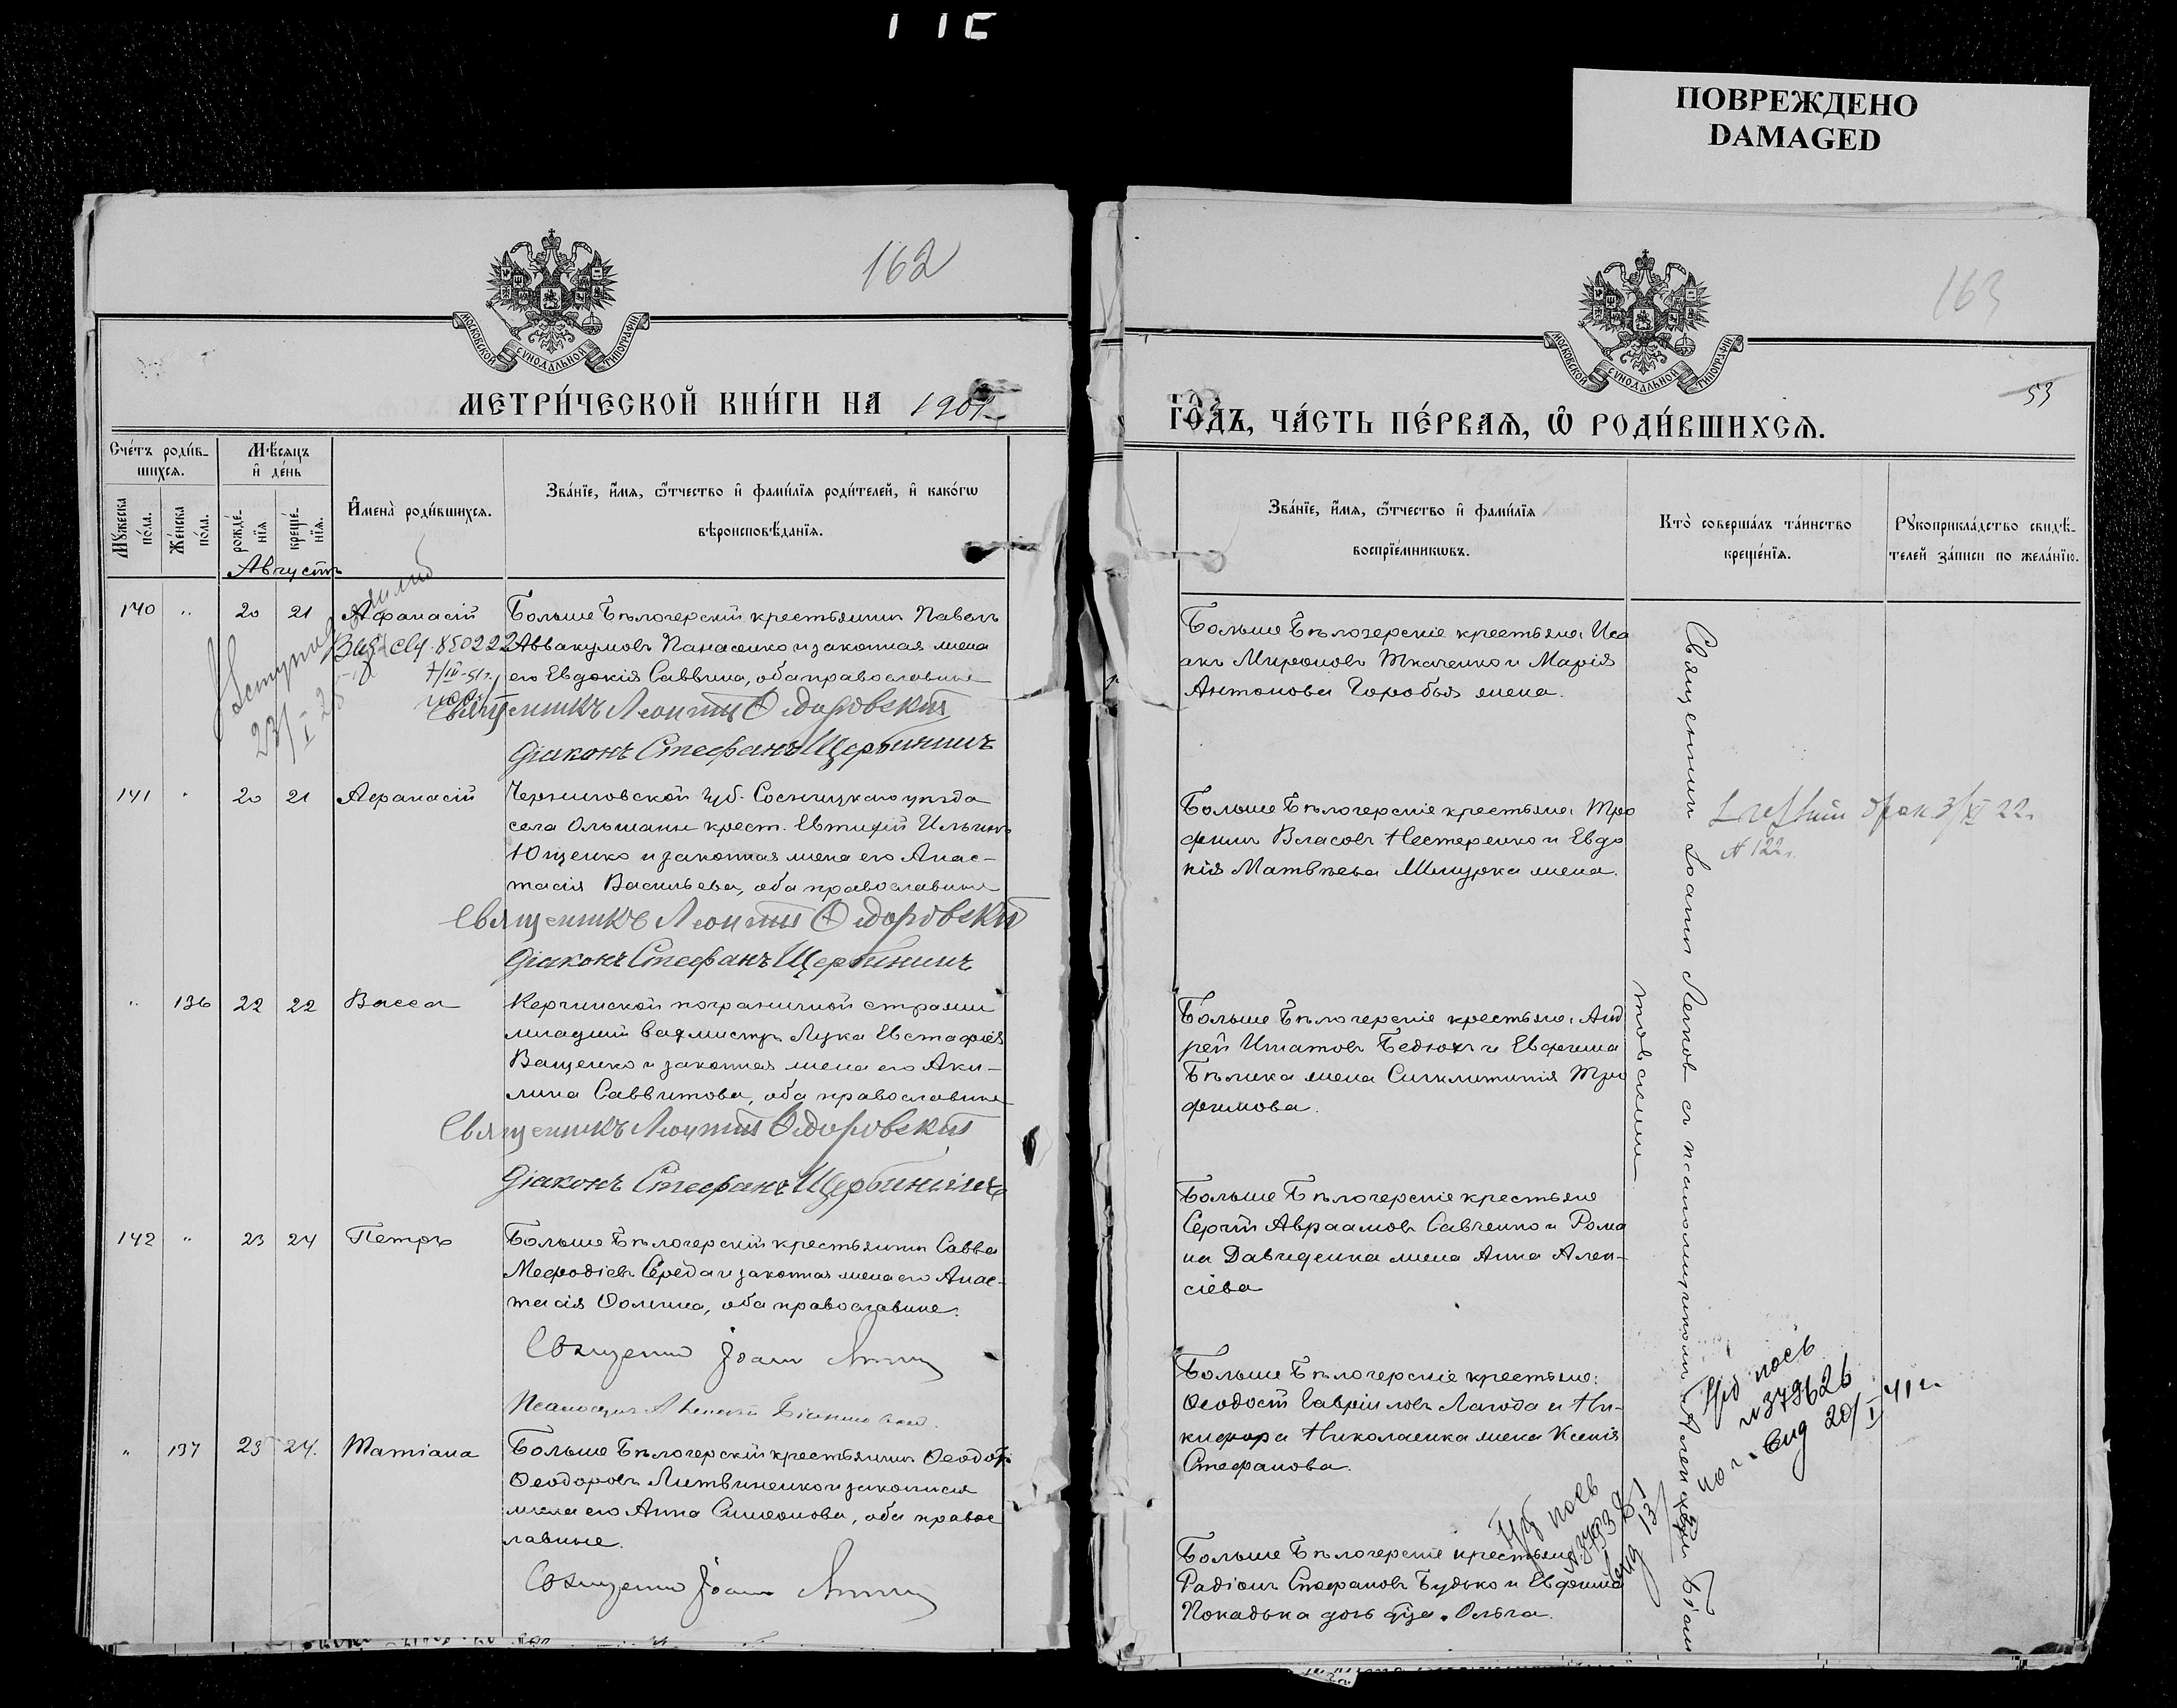 ПОВРЕЖДЕНО
DAMAGED
162
МОСКОВСКОЙ СѴНОДАЛЬНОЙ ТИПОГРАФІИ
МЕТРИ́ЧЕСКОЙ КНИ́ГИ НА 1901
Сче́тъ роди́в-
шихсѧ.
Мѣ́сѧцъ
и҆ де́нь
Мꙋ́жеска
по́ла.
Же́нска
по́ла.
рожде́-
нїѧ
креще́-
нїѧ.
И҆мена̀ роди́вшихсѧ.
Зва́нїе, и҆́мѧ, ѻ҆́тчество и҆ фами́лїѧ роди́телей, и҆ како́гѡ
вѣроисповѣ́данїѧ.
Августъ
140 " 20 21 Афанасій
Больше Бѣлозерскій крестьянинъ Павелъ
Аввакумовъ Панасенко и законная жена
его Евдокія Саввина, оба православные
Священникъ Леонтій Ѳедоровскій
Діаконъ Стефанъ Щербининъ
23/I 25
141 " 20 21 Афанасій
Черниговской губ. Сосницкаго уѣзда
села Ольшани крест. Евтифій Ильинъ
Ющенко и законная жена его Анас-
тасія Васильева, оба православные
Священникъ Леонтій Ѳедоровскій
Діаконъ Стефанъ Щербининъ
" 136 22 22 Васса
Керчинской пограничной стражи
младшій вахмистръ Лука Евстафіевъ
Ващенко и законная жена его Аки-
лина Саввитова, оба православные
Священникъ Леонтій Ѳедоровскій
Діаконъ Стефанъ Щербининъ
142 " 23 24 Петръ
Больше Бѣлозерскій крестьянинъ Савва
Меѳодіевъ Середа и законная жена его Анас-
тасія Ѳомина, оба православные.
Священникъ Іоаннъ
" 137 23 24. Татіана
Больше Бѣлозерскій крестьянинъ Ѳеодоръ
Ѳеодоровъ Литвиненко и законная
жена его Анна Симеонова, оба правос
лавные.
Священникъ Іоаннъ
163
53
МОСКОВСКОЙ СѴНОДАЛЬНОЙ ТИПОГРАФІИ
ГО́ДЪ, ЧА́СТЬ ПЕ́РВАѦ, Ѡ҆ РОДИ́ВШИХСѦ.
Зва́нїе, и҆́мѧ, ѻ҆́тчество и҆ фами́лїѧ
воспрїе́мникѡвъ.
Кто̀ соверша́лъ та́инство
креще́нїѧ.
Рꙋкоприкла́дство свидѣ́-
телей за́писи по жела́нїю.
Больше Бѣлозерскіе крестьяне: Иса
акъ Мироновъ Ткаченко и Марія
Антонова Горобья жена.
Больше Бѣлозерскіе крестьяне: Тро
фимъ Власовъ Нестеренко и Евдо
кія Матвѣева жена.
Больше Бѣлозерскіе крестьяне: Анд
рей Игнатовъ Бедюхъ и Евфима
Бѣлика жена Синклитикія Тро
фимова.
Больше Бѣлозерскіе крестьяне
Сергій Авраамовъ Савченко и Рома
на Давиденка жена Анна Алек-
сіева
Больше Бѣлозерскіе крестьяне:
Ѳеодосій Гавріиловъ Лагода и Ни-
кифора Николаенка жена Ксенія
Стефанова.
Больше Бѣлозерскіе крестьяне
Радіонъ Стефановъ Будько и Евфима
дочь дѣва Ольга.
Священникъ Іоаннъ Легковъ съ псаломщикомъ
брак 3/XI 22.
№ 122.
№379626
20/I 41 г.